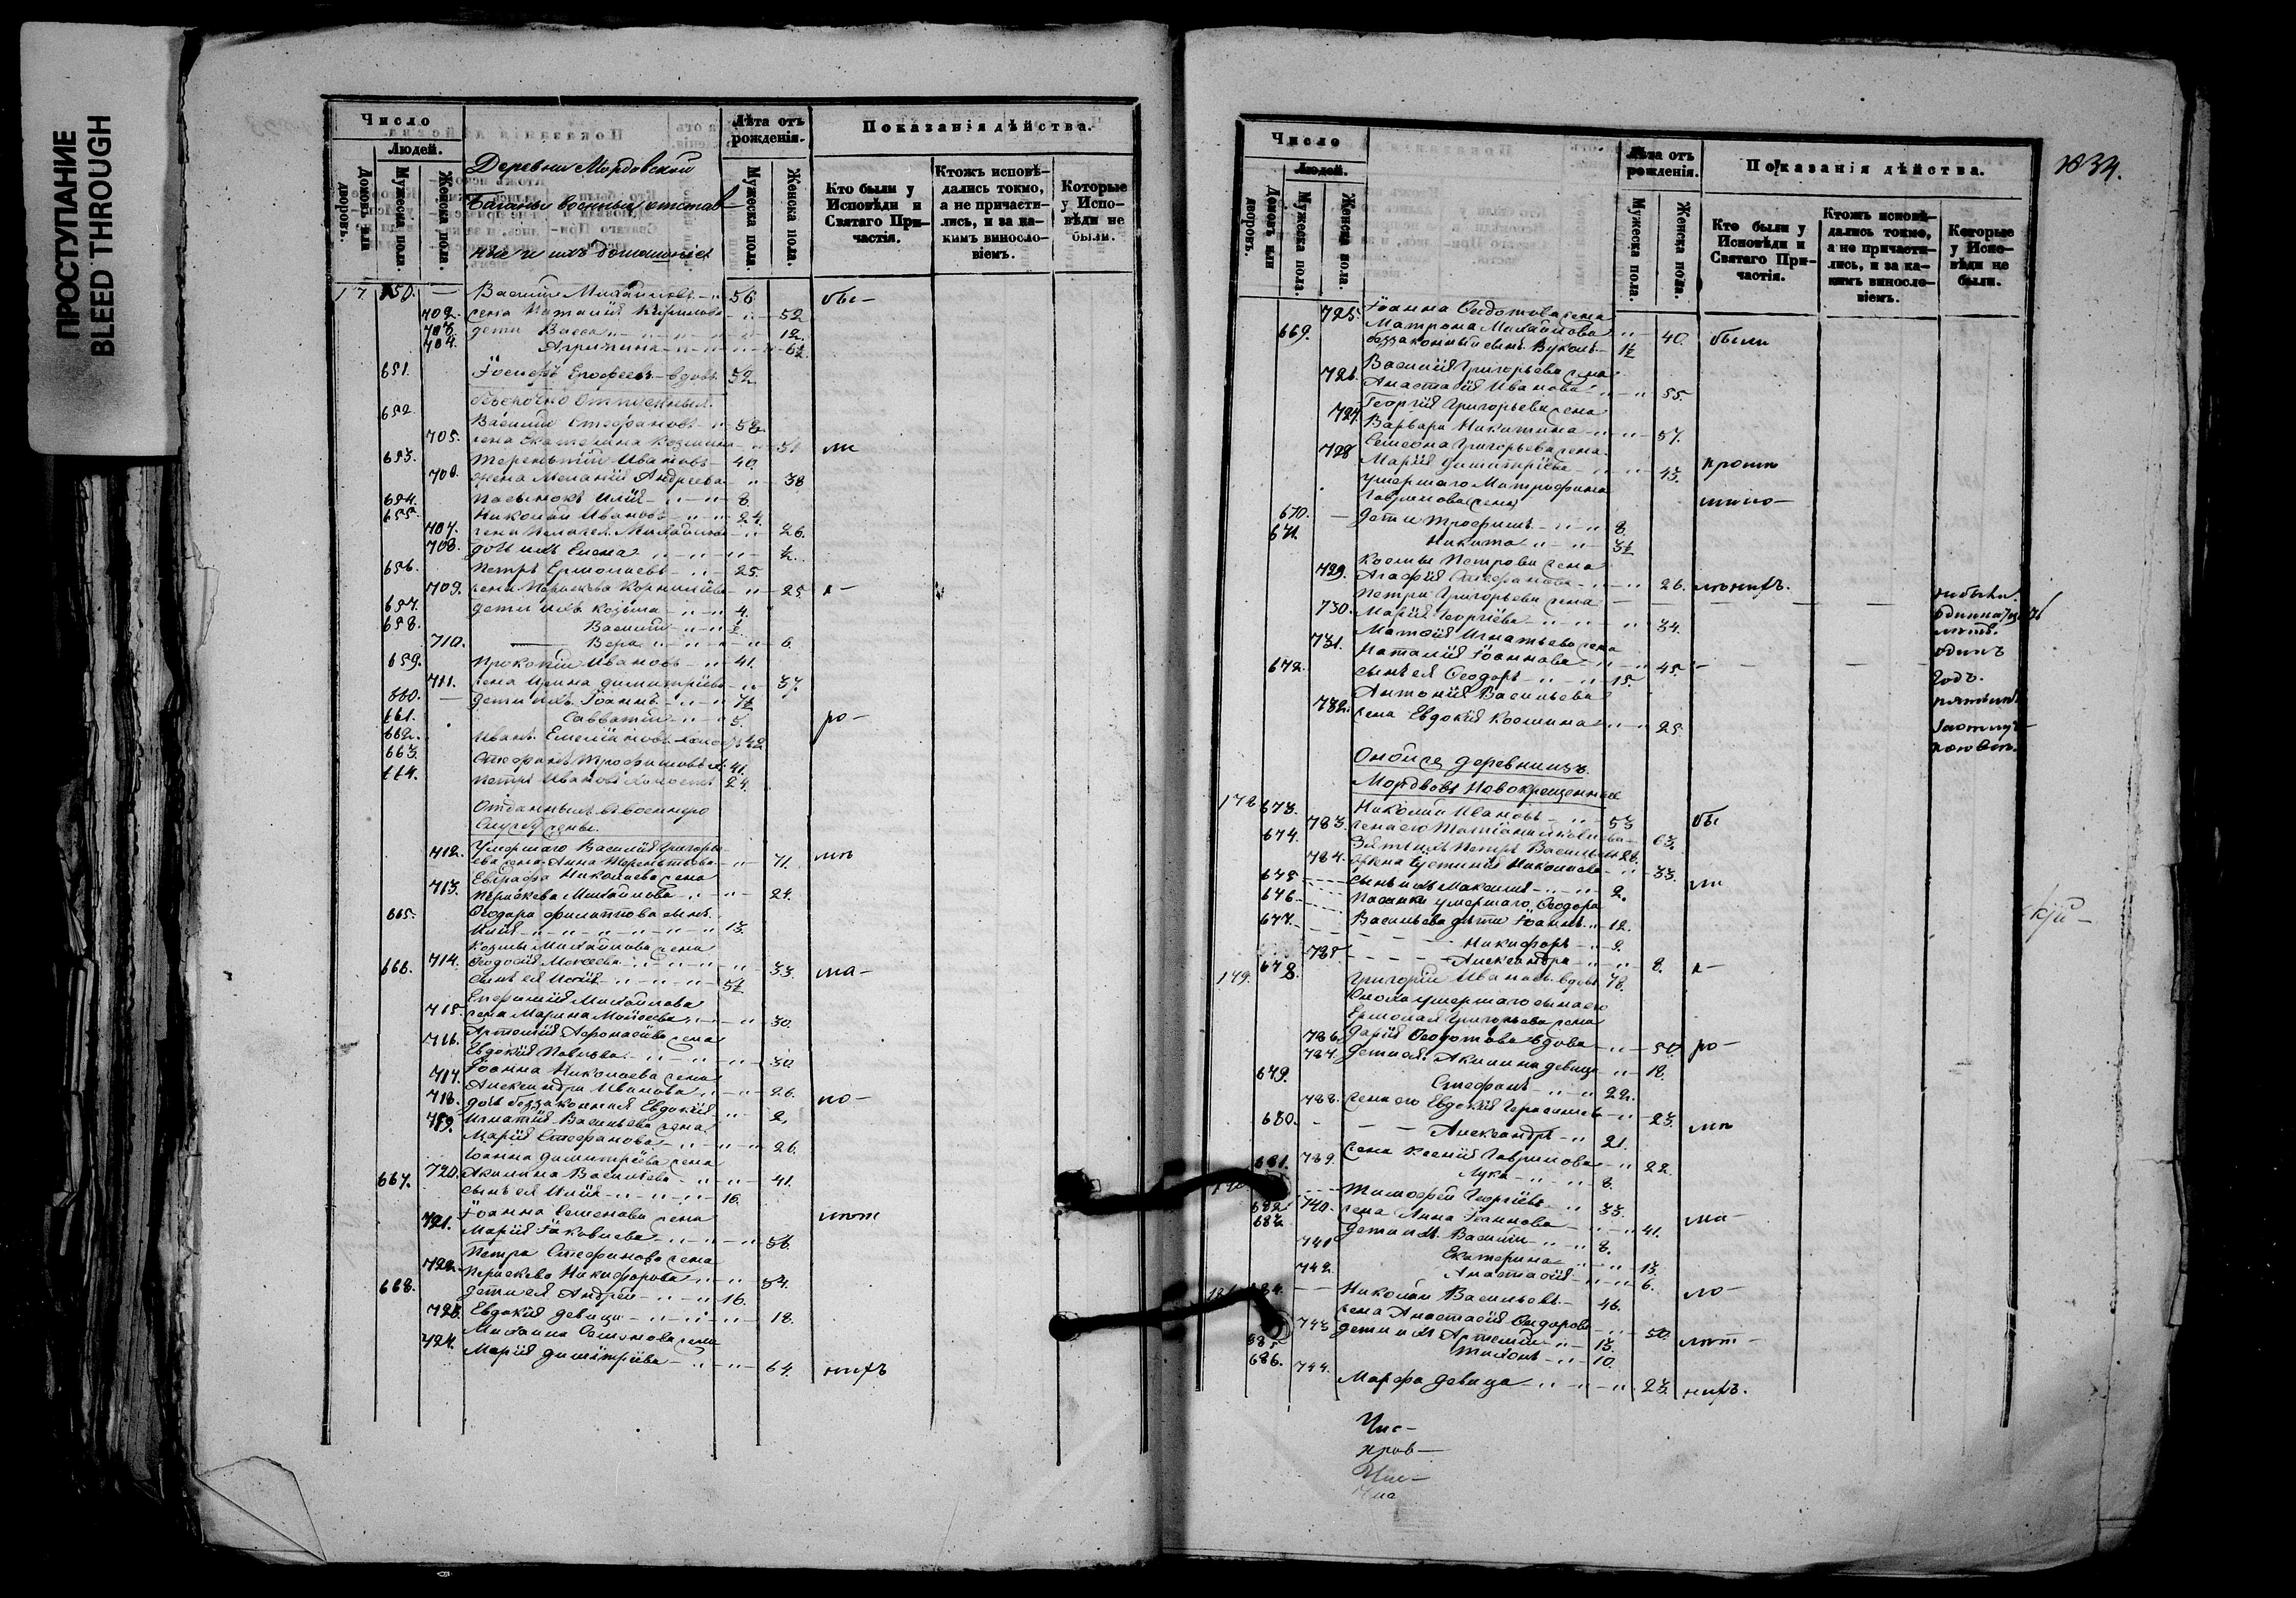 ПРОСТУПАНИЕ
BLEED THROUGH
Число
Людей.
Домовъ или дворовъ.
Мужеска пола.
Женска пола.
Деревни Мордовской
Баганы военныя отстав-
ныя и ихъ домашнія
Лѣта отъ рожденія.
Мужеска пола.
Женска пола.
Показанія дѣйства.
Кто были у Исповѣди и Святаго При-частія.
Ктожъ исповѣ-дались токмо, а не причасти-лись, и за ка-кимъ виносло-віемъ.
Которые у Испо-вѣди не были.
650. — Василій Михайловъ 56 обы-
702. жена Наталія Кирилова 52
703. дети Васса 12.
704. Агрипина 6½
651. Іосифъ Ерофеевъ вдовъ 52
безсрочно Отпускныя.
652. Василій Стефановъ 52
705. жена Екатерина Козмина 51 ли
653. Терентій Ивановъ 40.
706. жена Меланія Андреева 38
654. пасынокъ Илія 8.
655. Николай Ивановъ 24.
707. жена Пелагея Михайлова 26.
708. дочь ихъ Елена ½.
656. Петръ Ермолаевъ 25.
709. жена Параскева Корниліева 25 к-
657. дети ихъ Козьма 4.
658. Василій ½
710. Вера 6.
659. Прокопій Ивановъ 41.
711. жена Ирина Димитріева 37.
660. дети ихъ Іоаннъ 7½
661. Савватій 5. ро-
662. Иванъ Емеліановъ холос 42
663. Стефанъ Трофимовъ 41.
664. Петръ Ивановъ холостъ 24.
Отданныхъ въ военную
службу жены.
712. Умершаго Василія Григорь-
ева жена Анна Терентьева 71. мъ
Евграфа Николаева жена
713. Параскева Михайлова 24.
665. Ѳеодора Филиппова сынъ
Илія 13.
Козмы Михайлова жена
714. Ѳеодосія Моѵсеева 33. ма-
666. сынъ ея Исаія 5½
Ефимія Михайлова
715. жена Марина Моисеева 30.
Артемія Афонасіева жена
716. Евдокія Павлова 30
Іоанна Николаева жена
717. Александра Иванова 26.
718. дочь беззаконная Евдокія 2, но-
Игнатія Васильева жена
719. Марія Стефанова 26.
Іоанна Димитріева жена
720. Акилина Васильева 41.
667. сынъ ея Илія 16.
Іоанна Семенова жена
721. Марія Іаковлева 56.
Петра Стефанова жена
722. Параскева Никифорова 54.
668. дети ея Андрей 16.
723. Евдокія девица 18.
Михаила Семенова жена
724. Марія Димитріева 64. нихъ
1834.
Число
Людей.
Домовъ или дворовъ.
Мужеска пола.
Женска пола.
Лѣта отъ рожденія.
Мужеска пола.
Женска пола.
Показанія дѣйства.
Кто были у Исповѣди и Святаго При-частія.
Ктожъ исповѣ-дались токмо, а не причасти-лись, и за ка-кимъ виносло-віемъ.
Которые у Испо-вѣди не были.
725. Іоанна Ѳедотова жена
Матрона Михайлова 40. были
669. беззаконный сынъ Вуколъ 1½
Василія Григорьева жена
726. Анастасія Иванова 55.
Георгія Григорьева жена
727. Варвара Никитина 57.
Семеона Григорьева жена
728 Марія Димитріева 43. кромѣ
умершаго Митрофана
Гаврилова жена
670. — дети Трофимъ 8.
671. Никита 3½
Космы Петрова жена
729. Агафія Стефанова 26.
Петра Григорьева жена
730. Марія Георгіева 34.
Матвія Игнатьева жена
731. Наталія Іоаннова 45.
672. сынъ ея Ѳеодоръ 15.
Антонія Васильева
732. жена Евдокія Космина 25
небыли.
одиннадцать
летъ.
одинъ
годъ.
Оной же деревни изъ
Мордвовъ Новокрещенныя
673. Николай Ивановъ 53 обы
733. жена его Татіана Яковлева 63.
674. Зять ихъ Петръ Васильевъ 28.
734. жена Іустинія Николаева 33. ли
675 сынъ ихъ Максимъ 2.
676. Пасынки умершаго Ѳеодора
677. Васильева дѣти Іоаннъ 12.
Никифоръ 9.
735. Александра 8. к-
179. 678. Григорій Ивановъ вдовъ 78.
умершаго сына его
Ермолая Григорьева жена
736. Дарія Ѳеодотова вдова 50. ро-
737. дети ея: Акилина девица 18.
679. Стефанъ 22.
738. жена его Евдокія Герасимова 23.
680. Александръ 21. мъ
739. жена Ксенія Гаврилова 22.
681. Лука 8.
682. Тимофей Георгіевъ 33.
740. жена Анна Іоаннова 41. ма-
683. дети ихъ Василій 8.
741 Екатерина 13.
742. Анастасія 6. ло-
684. Николай Васильевъ 46.
743 жена Анастасія Ѳедорова 50.
685 дети ихъ Артемій 13. лѣт-
686. Тихонъ 10.
744. Марфа девица 23. нихъ.
Чис-
пров-
Чис-
Чис